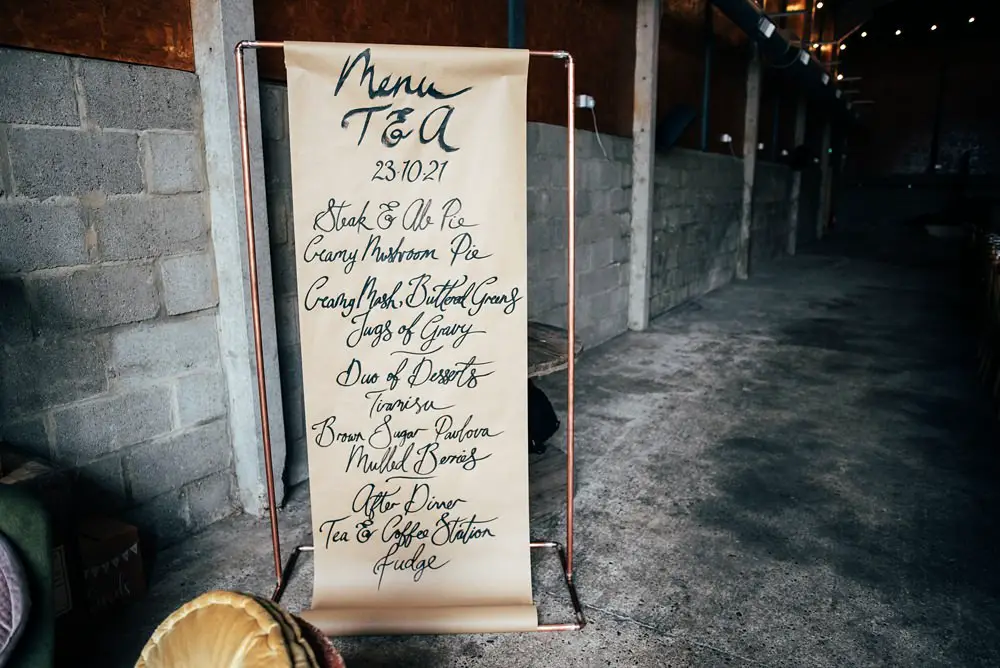 Menu
T & A
23·10·21
Steak & Ale Pie
Creamy Mushroom Pie
Creamy Mash, Buttered Greens
Jugs of Gravy
Duo of Desserts
Tiramisu
Brown Sugar Pavlova
Mulled Berries
After Dinner
Tea & Coffee Station
fudge